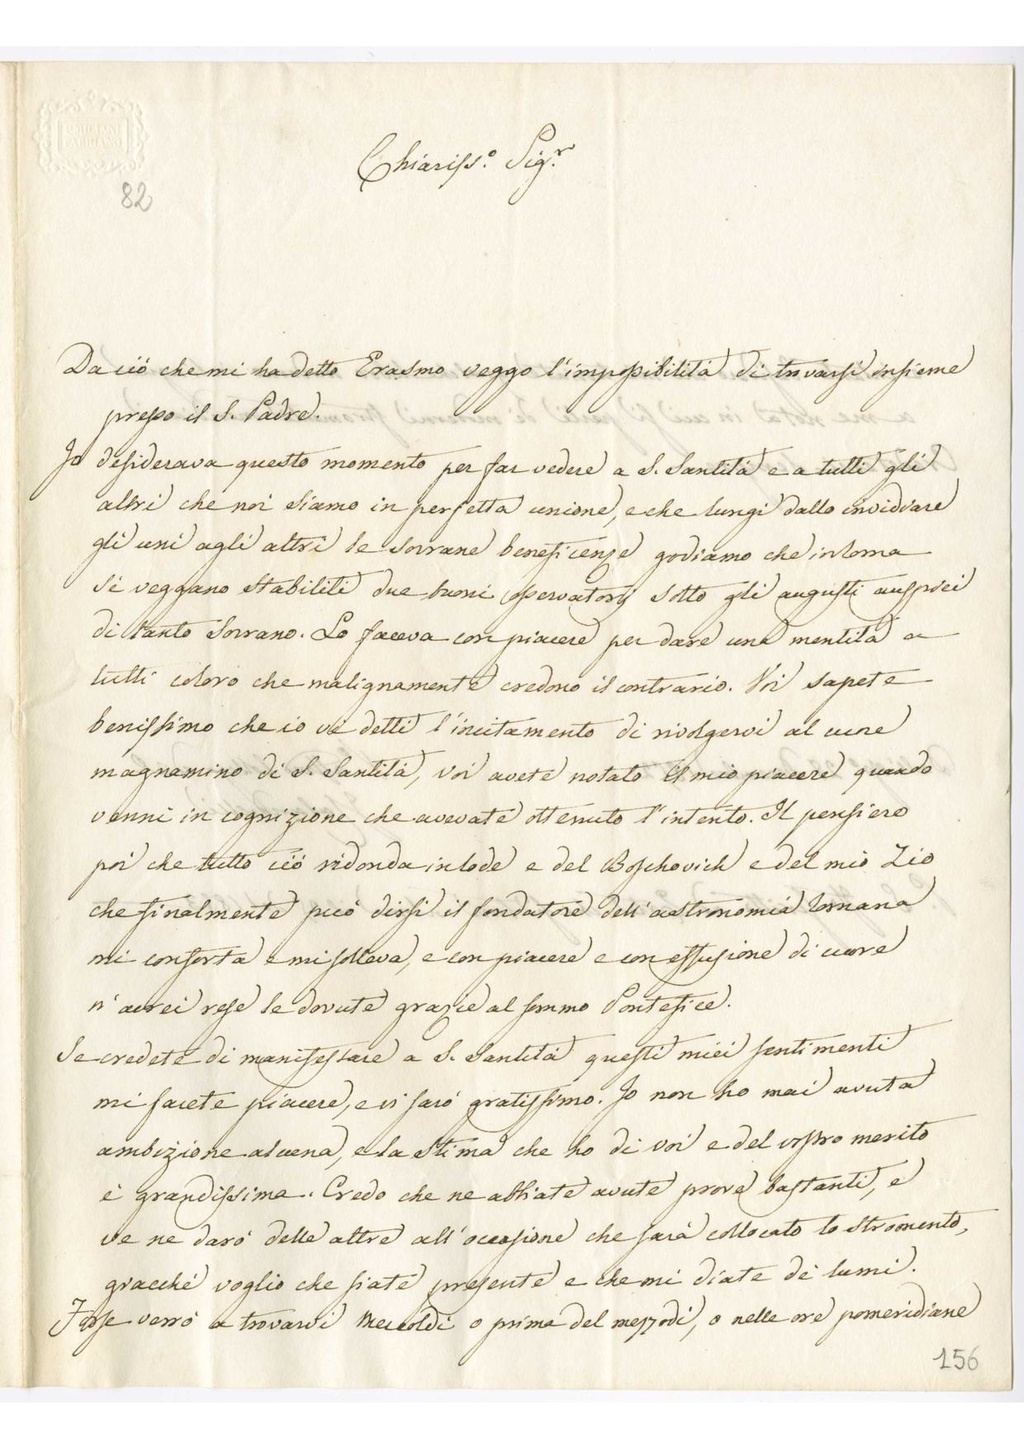 82
Chiariss.o Sig.r
Da ciò che mi ha detto Erasmo veggo l'impossibilità di trovarsi insieme
presso il S. Padre.
Io desiderava questo momento per far vedere a S. Santità e a tutti gli
altri che noi siamo in perfetta unione, e che lungi dallo invidiare
gli uni agli altri le sovrane beneficenze godiamo che in Roma
si veggano stabiliti due buoni osservatorj sotto gli augusti auspici
di tanto Sovrano. Lo faceva con piacere per dare una mentita a
tutti coloro che malignamente credono il contrario. Voi sapete
benissimo che io ve detti l'incitamento di rivolgervi al cuore
magnamino di S. Santità, voi avete notato il mio piacere quando
venni in cognizione che avevate ottenuto l'intento. Il pensiero
poi che tutto ciò ridonda in lode e del Boschovich e del mio Zio
che finalmente può dirsi il fondatore dell'astronomia Romana
mi conforta e mi solleva, e con piacere e con effusione di cuore
n'avrei rese le dovute grazie al sommo Pontefice.
Se credete di manifestare a S. Santità questi miei sentimenti
mi farete piacere, e vi sarò gratissimo. Io non ho mai avuta
ambizione alcuna, e la stima che ho di voi e del vostro merito
è grandissima. Credo che ne abbiate avute prove bastanti, e
ve ne darò delle altre all'occasione che sarà collocato lo stromento,
giacché voglio che siate presente e che mi diate de' lumi.
Forse verrò a trovarvi Mercoldì o prima del mezzodì, o nelle ore pomeridiane
156